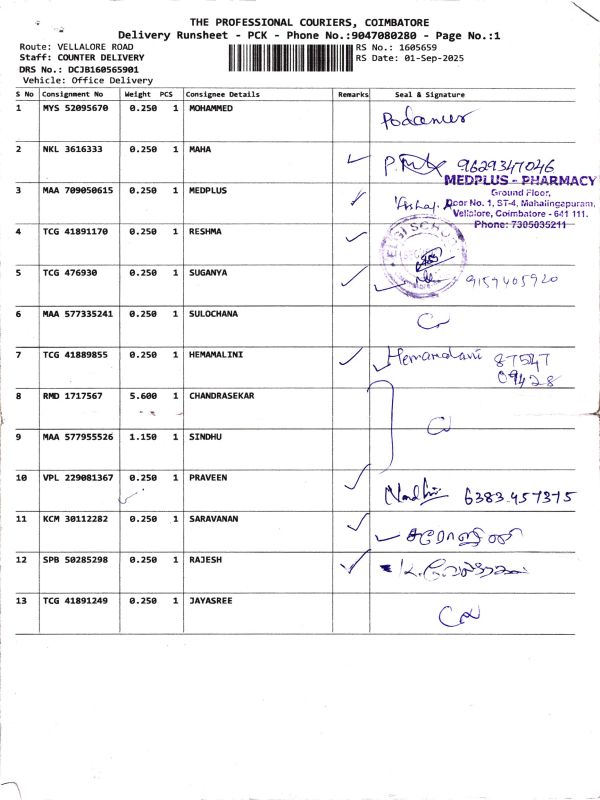 THE PROFESSIONAL COURIERS, COIMBATORE
Delivery Runsheet - PCK - Phone No.:9047080280 - Page No.:1
Route: VELLALORE ROAD
RS No.: 1605659
Staff: COUNTER DELIVERY
RS Date: 01-Sep-2025
DRS No.: DCJB160565901
Vehicle: Office Delivery
S No Consignment No Weight PCS Consignee Details Remarks Seal & Signature
1 MYS 52095670 0.250 1 MOHAMMED
Podanur
2 NKL 3616333 0.250 1 MAHA
9629347046
3 MAA 709050615 0.250 1 MEDPLUS
MEDPLUS - PHARMACY
Ground Floor,
Door No. 1, ST-4, Mahalingapuram,
Vellalore, Coimbatore - 641 111.
Phone: 7305035211
4 TCG 41891170 0.250 1 RESHMA
ELGI SCHOOL
5 TCG 476930 0.250 1 SUGANYA
9159405920
6 MAA 577335241 0.250 1 SULOCHANA
7 TCG 41889855 0.250 1 HEMAMALINI
87547
09428
8 RMD 1717567 5.600 1 CHANDRASEKAR
9 MAA 577955526 1.150 1 SINDHU
10 VPL 229081367 0.250 1 PRAVEEN
Nandhini 6383457375
11 KCM 30112282 0.250 1 SARAVANAN
12 SPB 50285298 0.250 1 RAJESH
13 TCG 41891249 0.250 1 JAYASREE